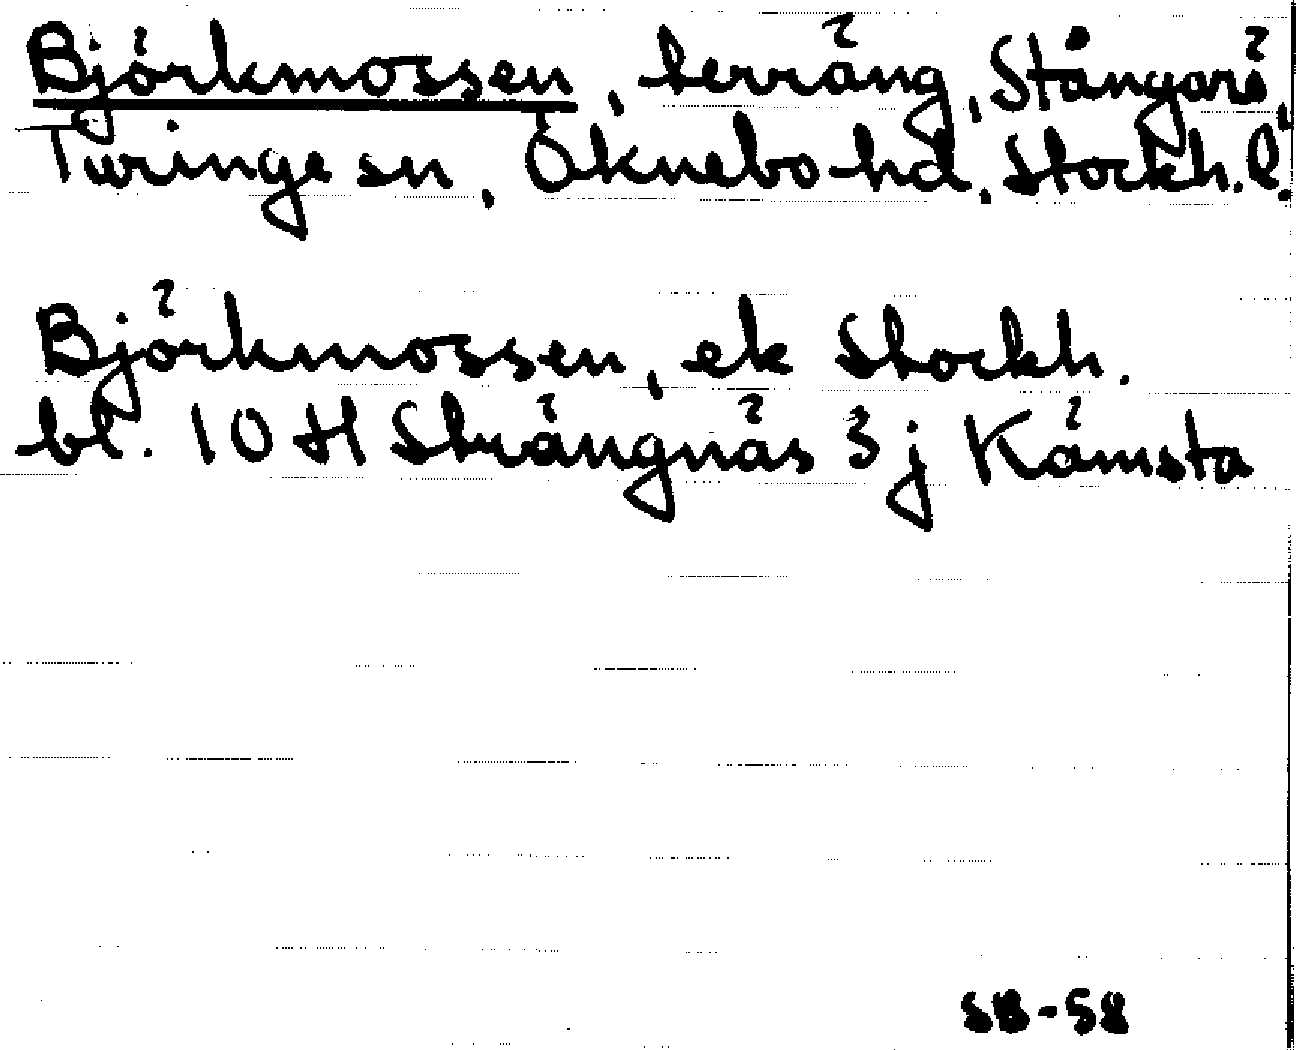 Björkmossen, terräng, Stångarö,
Turinge sn, Öknebo hd, Stockh. l.
Björkmossen, ek Stockh.
bl. 10 H Strängnäs 3 j Kämsta
SB-58